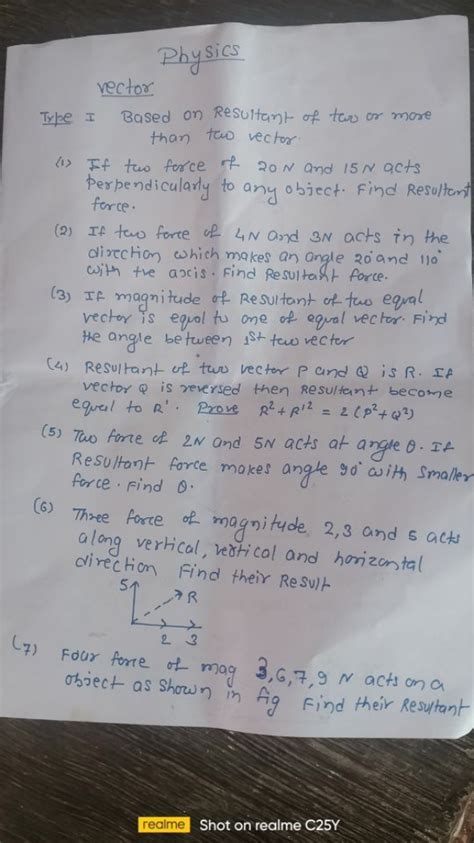 Physics
vector
Type I Based on Resultant of two or more
than two vector.
(1) If two force of 20 N and 15 N acts
Perpendicularly to any object. Find Resultant
force.
(2) If two force of 4N and 3N acts in the
direction which makes an angle 20° and 110°
with +ve axis. Find Resultant force.
(3) If magnitude of Resultant of two equal
vector is equal to one of equal vector. Find
the angle between 1st two vector
(4) Resultant of two vector P and Q is R. If
vector Q is reversed then Resultant become
equal to R'. Prove R² + R'² = 2 (P² + Q²)
(5) Two force of 2N and 5N acts at angle θ. If
Resultant force makes angle 90° with smaller
force. Find θ.
(6) Three force of magnitude 2,3 and 5 acts
along vertical, vertical and horizontal
direction Find their Result
5
R
2 3
(7) Four force of mag 3,6,7,9 N acts on a
object as shown in fig Find their Resultant
realme Shot on realme C25Y